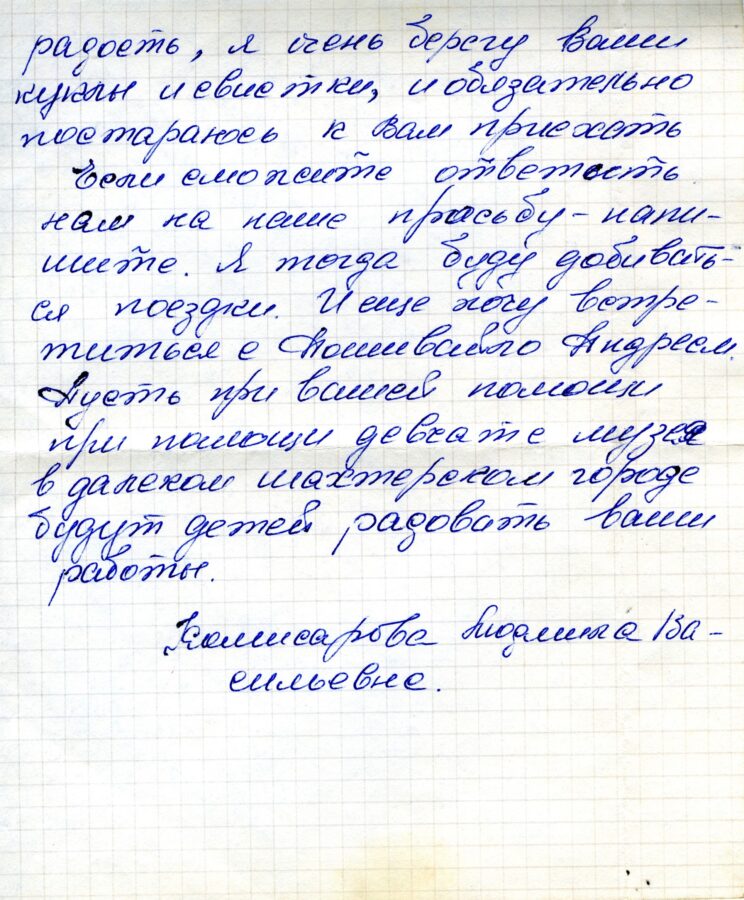 радость, я очень берегу Ваши
куклы и свистки, и обязательно
постараюсь к Вам приехать
Если сможите ответить
нам на наше просьбу - напи-
шите. Я тогда буду добивать-
ся поездки. И еще хочу встре-
титься с Пошивайло Андреем.
Пусть при вашей помощи
при помощи девчате музея
в далеком шахтерском городе
будут детей радовать ваши
работы.
Комисарова Людмила Ва-
сильевна.